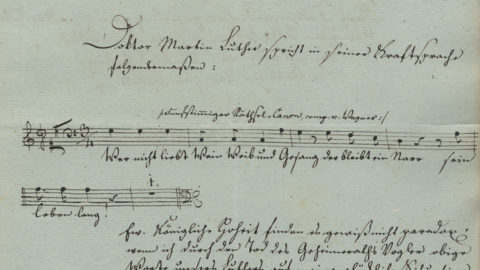 Doktor Martin Luther spricht in seiner Kraftsprache
folgendermaßen:
fünfstimmiger Räthsel-Canon, comp. v. Wagner:/
Wer nicht liebt Wein Weib und Gesang der bleibt ein Narr sein
leben lang!
Ew. Königliche Hoheit finden es gewiß nicht paradox,
wenn ich durch den Tod des Geheimeraths Vogler obige
Worte unsers Luthers auf